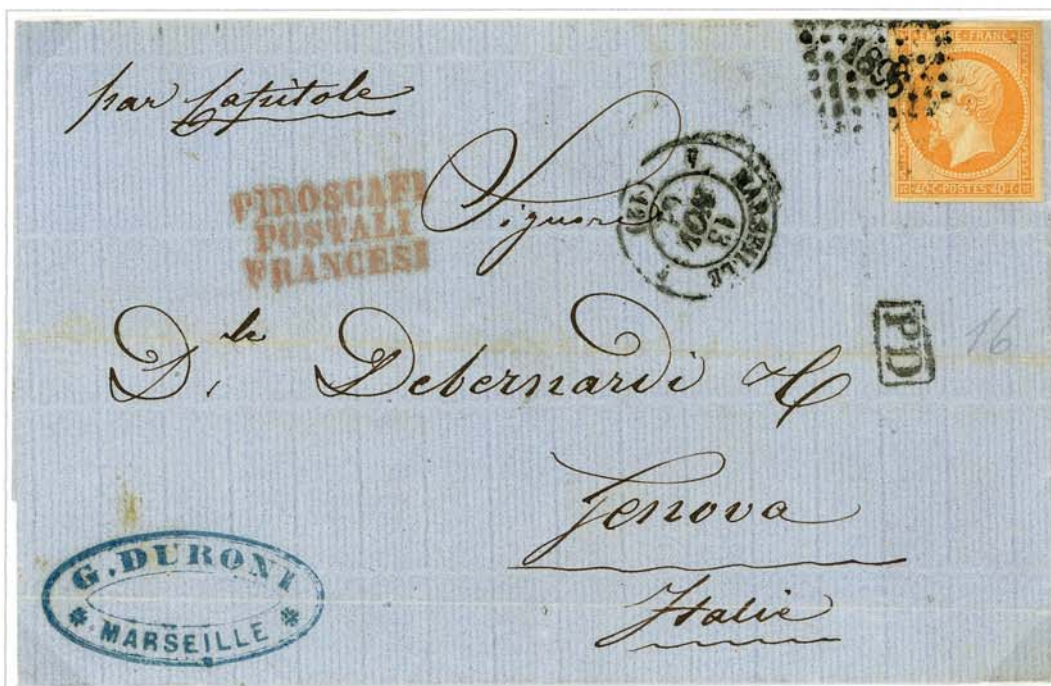 par Capitole
1896
EMPIRE FRANC
40·C·POSTES·40·C
PIROSCAFI
POSTALI
FRANCESI
MARSEILLE
13
NOV
(12)
Signori
D. Debernardi &
PD
16
Genova
Italie
G. DURONI
* MARSEILLE *